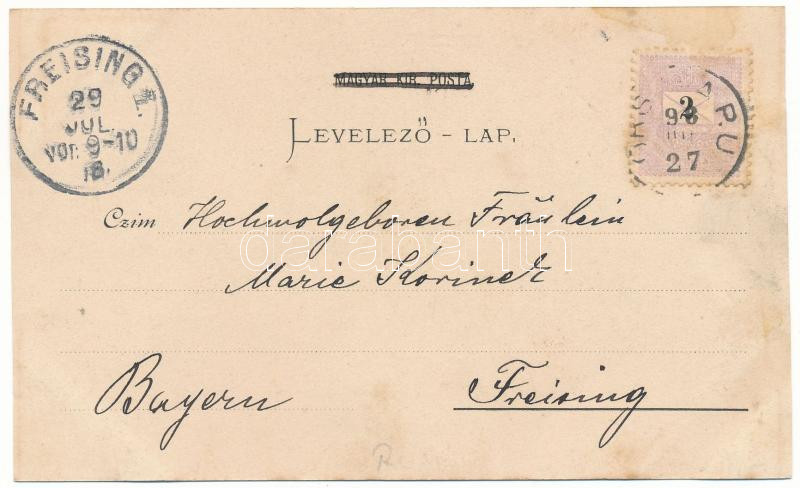 FREISING I.
29
JUL.
Vor. 9-10
MAGYAR KIR. POSTA
LEVELEZŐ - LAP.
2
98
27
Czim Hochwolgeboren Fräulein
Marie Korinek
Bayern Freising
darabanth